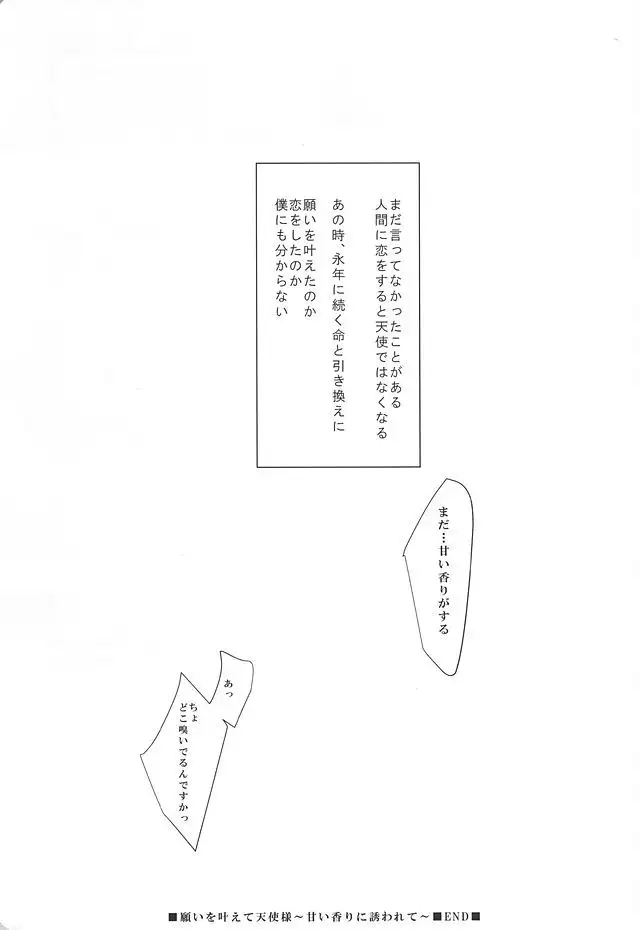 まだ言ってなかったことがある
人間に恋をすると天使ではなくなる
あの時、永年に続く命と引き換えに
願いを叶えたのか
恋をしたのか
僕にも分からない
まだ…甘い香りがする
あっ
ちょ
どこ嗅いでるんですかっ
■願いを叶えて天使様～甘い香りに誘われて～■END■